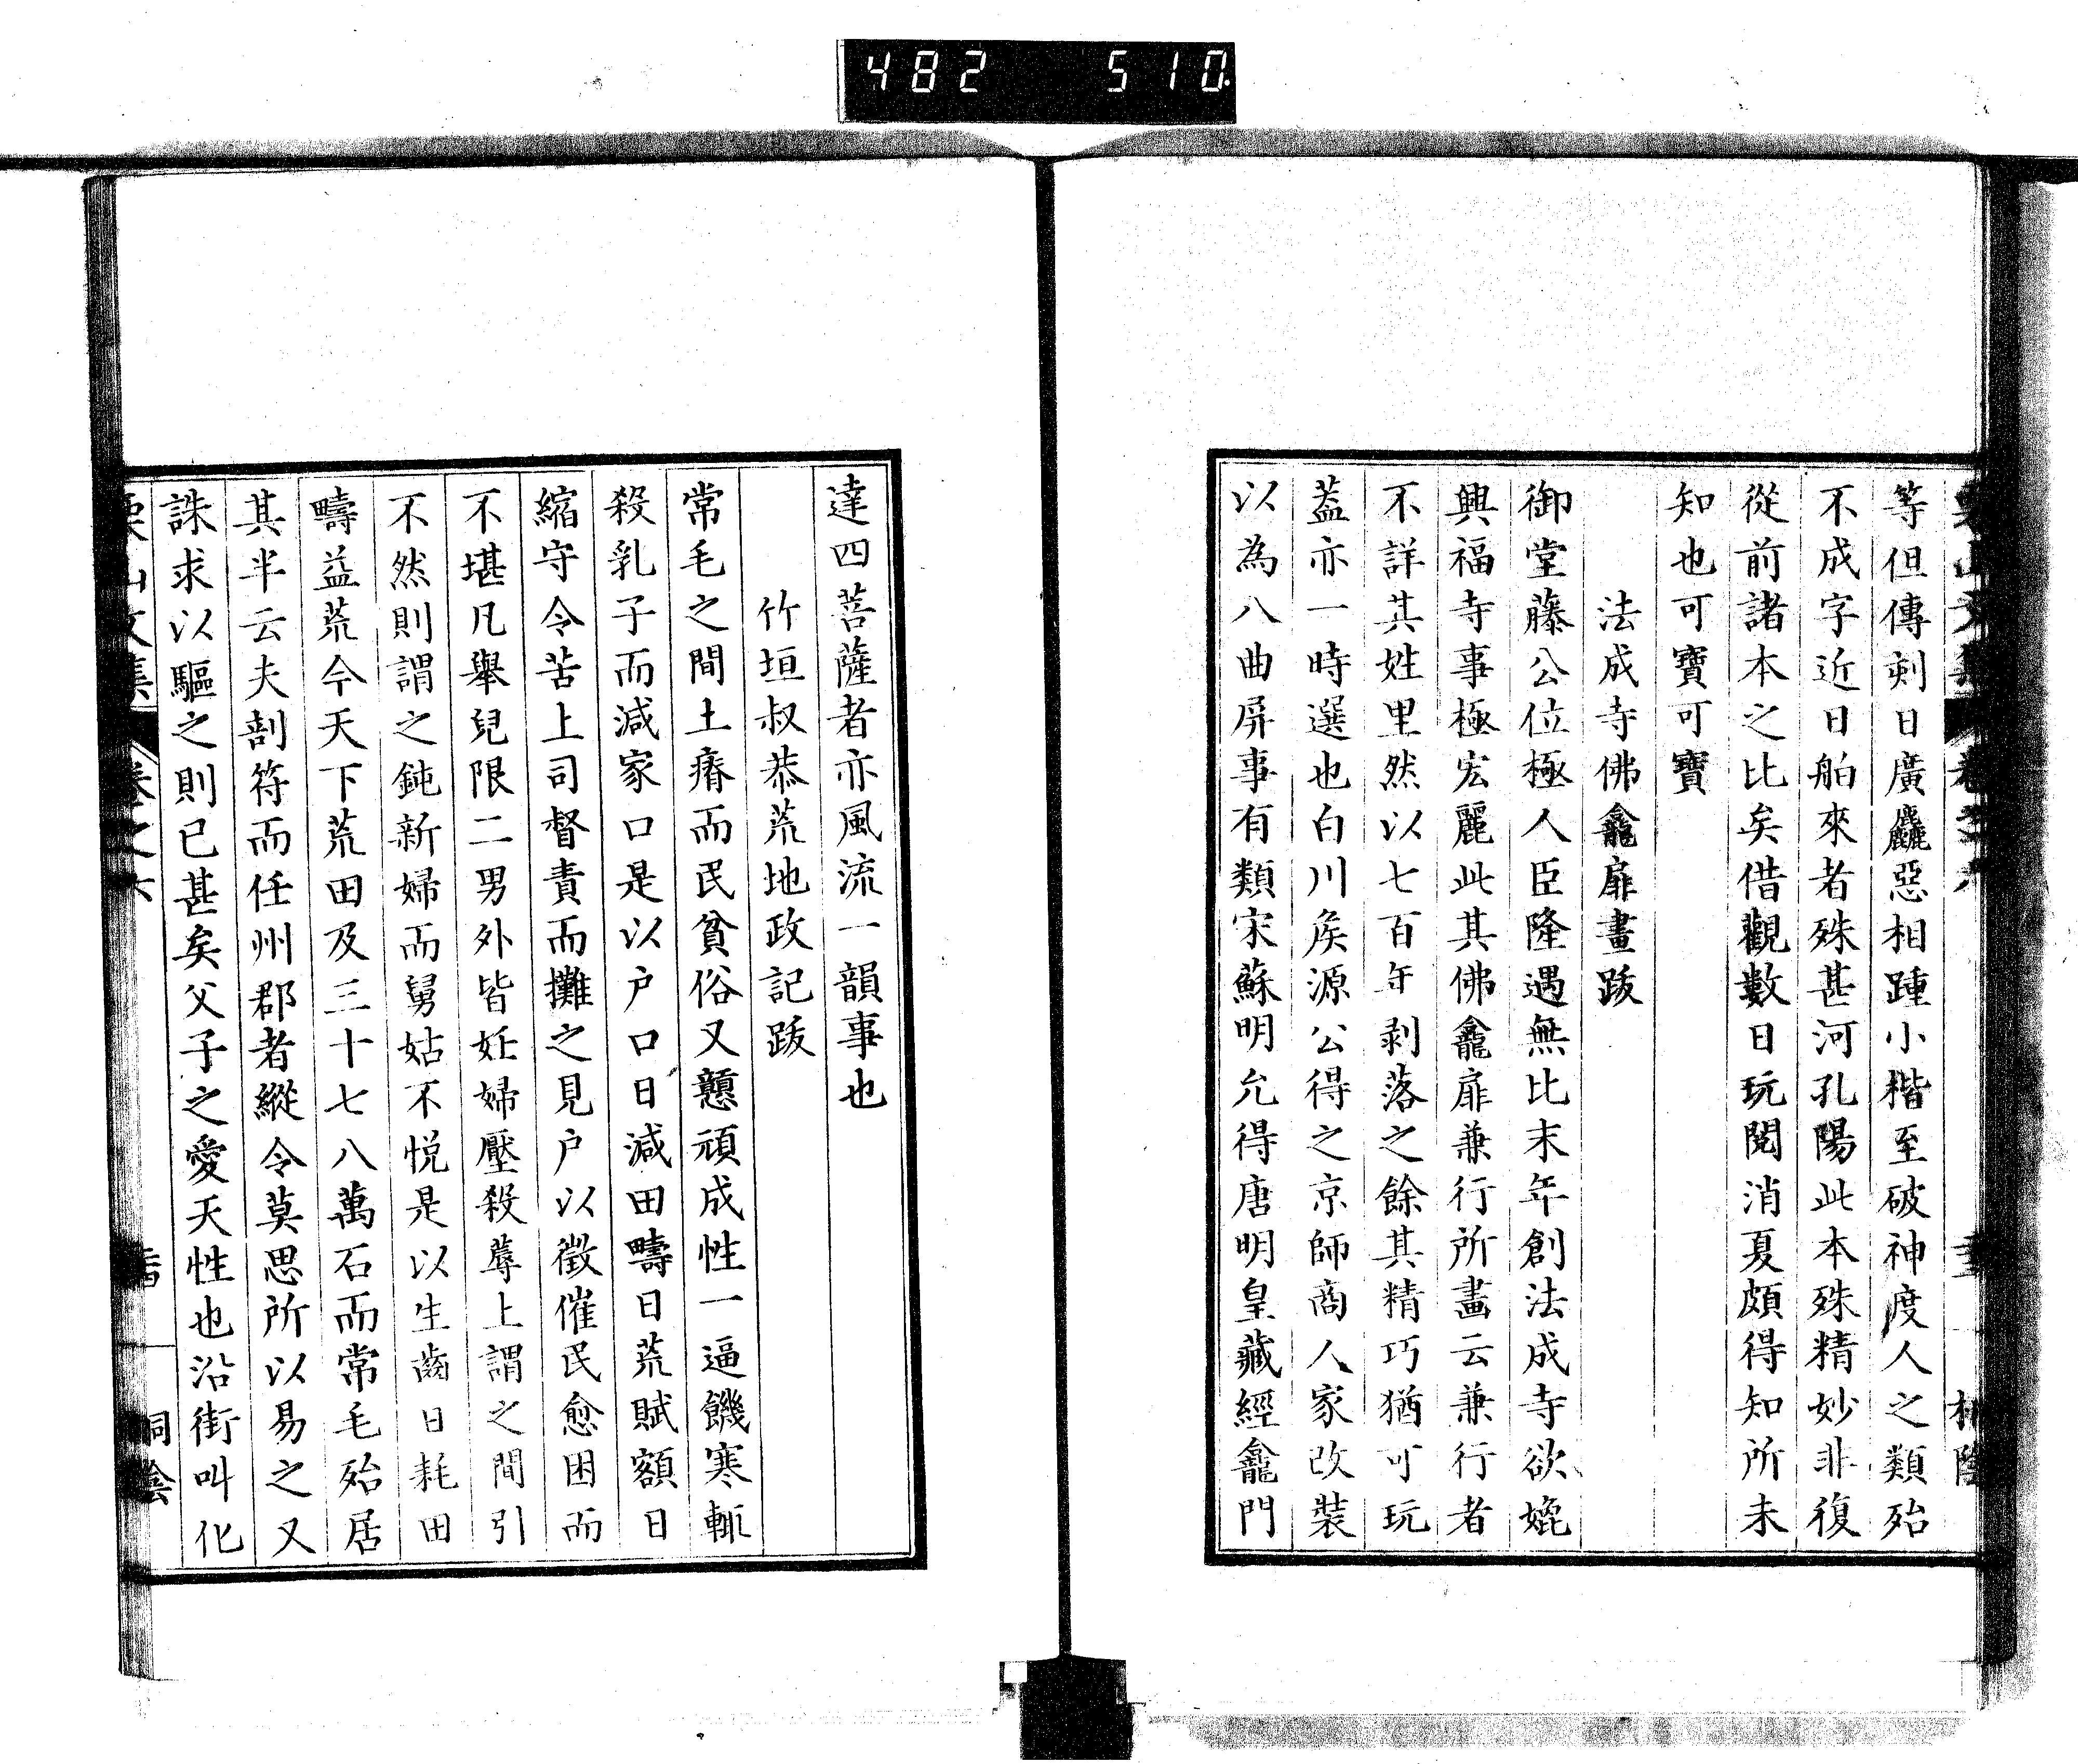 482 510
等但傳刻日廣麤惡相踵小楷至破神度人之類殆
不成字近日舶來者殊甚河孔陽此本殊精妙非復
從前諸本之比矣借觀數日玩閱消夏頗得知所未
知也可寶可寶
法成寺佛龕扉畫跋
御堂藤公位極人臣隆遇無比末年創法成寺欲媲
興福寺事極宏麗此其佛龕扉兼行所畫云兼行者
不詳其姓里然以七百年剥落之餘其精巧猶可玩
蓋亦一時選也白川矦源公得之京師商人家改裝
以為八曲屏事有類宋蘇明允得唐明皇藏經龕門
達四菩薩者亦風流一韻事也
竹垣叔恭荒地政記跋
常毛之間土瘠而民貧俗又戇頑成性一逼饑寒輒
殺乳子而減家口是以户口日減田疇日荒賦額日
縮守令苦上司督責而攤之見户以徵催民愈困而
不堪凡舉兒限二男外皆妊婦壓殺蓐上謂之間引
不然則謂之鈍新婦而舅姑不悦是以生齒日耗田
疇益荒今天下荒田及三十七八萬石而常毛殆居
其半云夫剖符而任州郡者縱令莫思所以易之又
誅求以驅之則已甚矣父子之愛天性也沿街叫化
栗山文集 卷之六